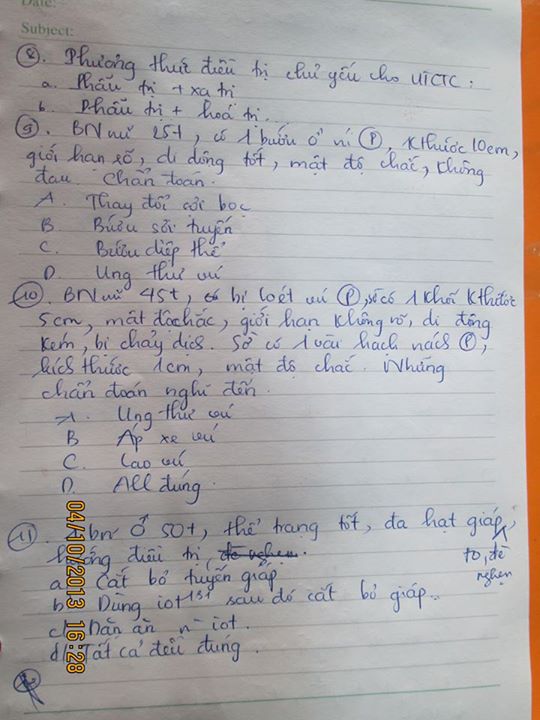 Date:
Subject:
8. Phương thức điều trị chủ yếu cho UTCTC:
a. Phẫu trị + xạ trị
b. Phẫu trị + hoá trị.
9. BN nữ 25t, có 1 bướu ở vú (P), kthước 10cm,
giới hạn rõ, di động tốt, mật độ chắc, không
đau. Chẩn đoán.
A. Thay đổi sợi bọc
B. Bướu sợi tuyến
C. Bướu diệp thể
D. Ung thư vú
10. BN nữ 45t, bị loét vú (P), sờ có 1 khối kthước
5cm, mật độ chắc, giới hạn không rõ, di động
kém, bị chảy dịch. Sờ có 1 vài hạch nách (P),
kích thước 1cm, mật độ chắc. Những
chẩn đoán nghĩ đến.
A. Ung thư vú
B Áp xe vú
C. Lao vú
D. All đúng.
11. bn ♂ 50t, thể trạng tốt, đa hạt giáp,
to, đè
nghẹn
hướng điều trị,
a Cắt bỏ tuyến giáp
b Dùng iot 131 sau đó cắt bỏ giáp..
c Dần ăn n- iot.
d Tất cả đều đúng.
04/10/2013 16:28